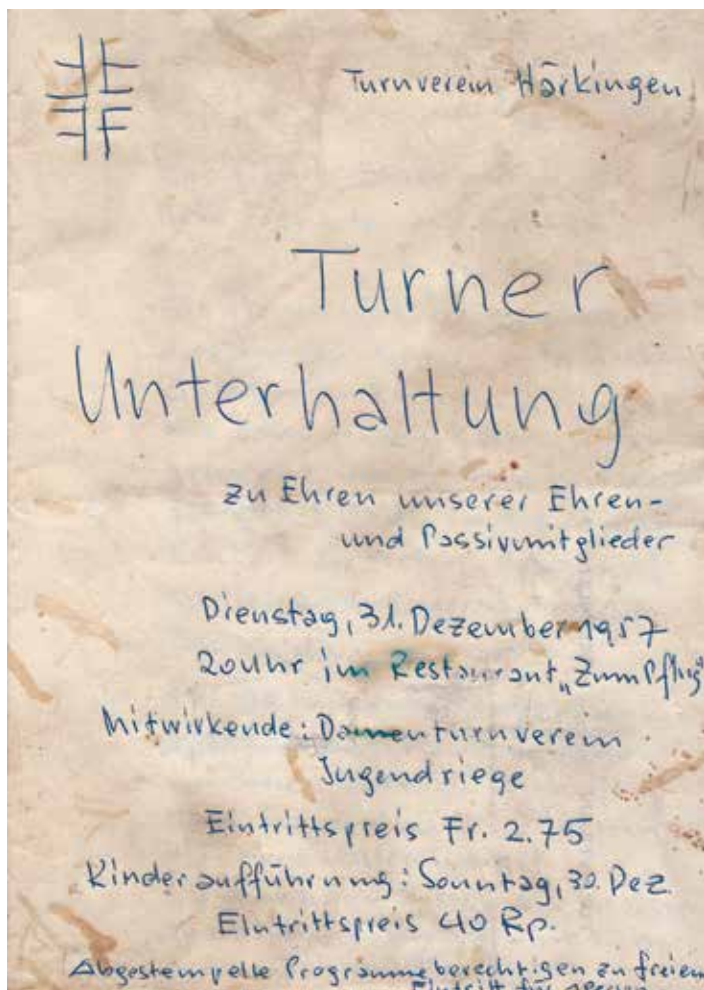 Turnverein Härkingen
Turner
Unterhaltung
zu Ehren unserer Ehren-
und Passivmitglieder
Dienstag, 31. Dezember 1957
20 Uhr im Restaurant „Zum Pflug"
Mitwirkende: Damenturnverein
Jugendriege
Eintrittspreis Fr. 2.75
Kinderaufführung: Sonntag, 30. Dez.
Eintrittspreis 40 Rp.
Abgestempelte Programme berechtigen zu freiem
Eintritt für